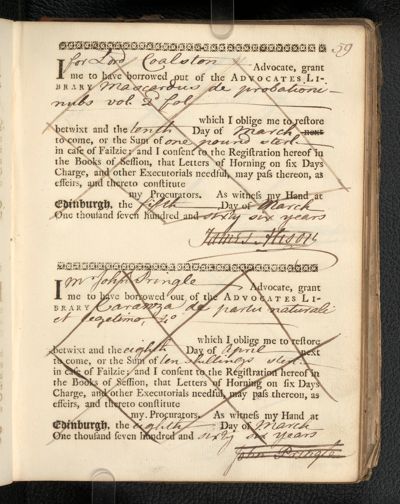 59
I for Lord Coalston Advocate, grant
me to have borrowed out of the ADVOCATES LI-
BRARY Mascardus de probationi-
nubs vol. 2d fol
which I oblige me to restore
betwixt and the tenth Day of March next
to come, or the Sum of one pound sterl.
in case of Failzie; and I consent to the Registration hereof in
the Books of Session, that Letters of Horning on six Days
Charge, and other Executorials needful, may pass thereon, as
effeirs, and thereto constitute
my Procurators. As witness my Hand at
Edinburgh, the fifth Day of March
One thousand seven hundred and sixty six years
James
I Mr John Pringle Advocate, grant
me to have borrowed out of the ADVOCATES LI-
BRARY Caranza de partu naturali
et legitimo, 4o
which I oblige me to restore
betwixt and the eighth Day of April next
to come, or the Sum of ten shillings sterl.
in case of Failzie; and I consent to the Registration hereof in
the Books of Session, that Letters of Horning on six Days
Charge, and other Executorials needful, may pass thereon, as
effeirs, and thereto constitute
my Procurators. As witness my Hand at
Edinburgh, the eighth Day of March
One thousand seven hundred and sixty six years
John Pringle